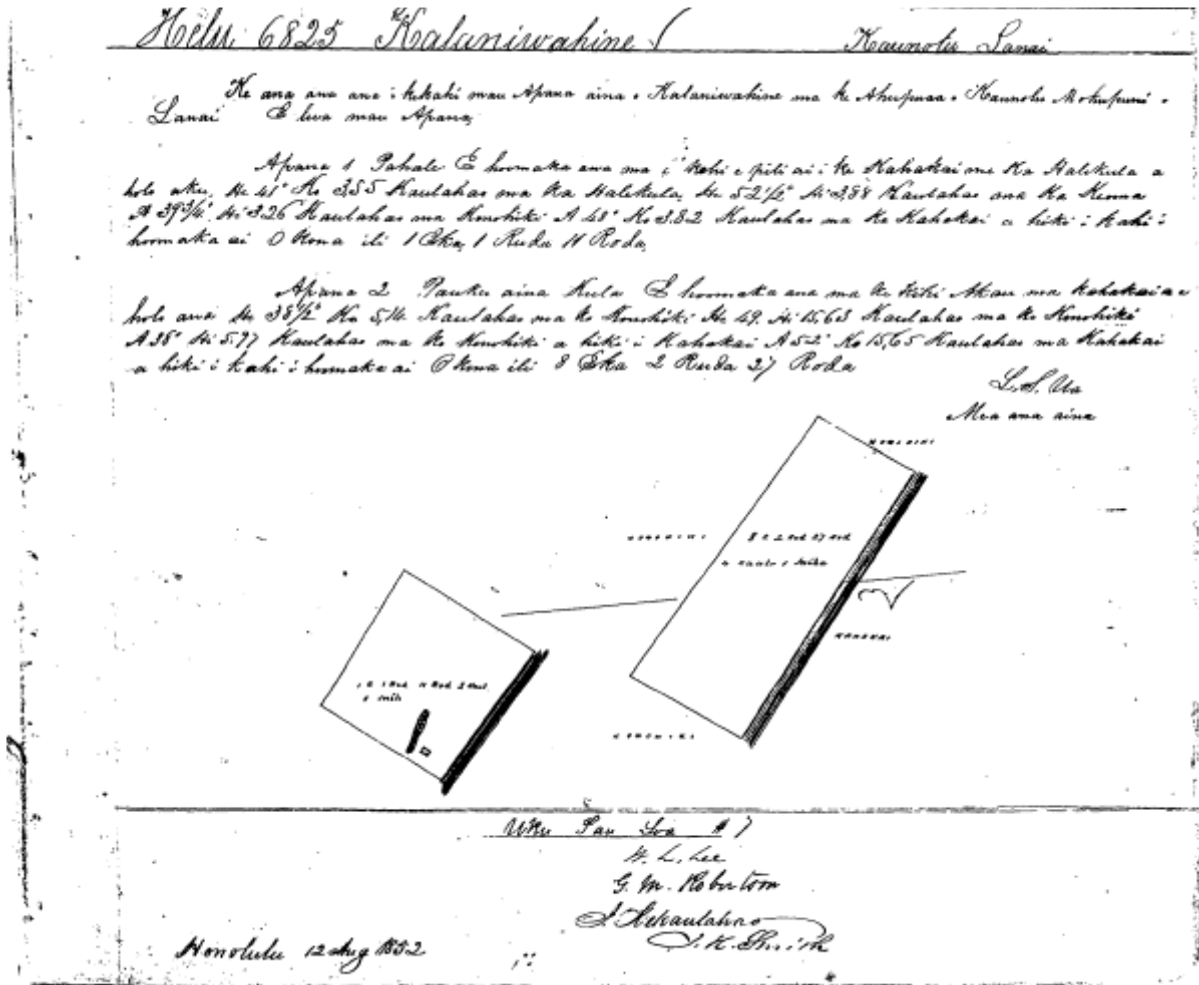 Helu 6825 Kalaniwahine Kaunolu Lanai
Ke ana ana ana i kekahi mau Apana aina o Kalaniwahine ma ke Ahupuaa o Kaunolu Mokupuni o
Lanai E lua mau Apana,
Apana 1 Pahale E hoomaka ana ma i kahi e pili ai i ke Kahakai me Ka Halekula a
holo aku, He 41° Ko 3,55 Kaulahao ma Ka Halekula, He 52 1/2° Hi 3,88 Kaulahao ma Ka
A 39 3/4° Hi 3.26 Kaulahao ma Konohiki A 48° Ko 3.82 Kaulahao ma ke Kahakai a hiki i kahi i
hoomaka ai O kona ili 1 Eka, 1 Ruda 11 Roda,
Apana 2 Pauku aina Kula E hoomaka ana ma ke Kihi Akau ma kahakai a e
holo ana He 38 1/2° Ko 5,14 Kaulahao ma ke Konohiki He 49. Hi 15,63 Kaulahao ma ke Konohiki
A 38° Hi 5.97 Kaulahao ma ke Konohiki a hiki i Kahakai A 52° Ko 15,65 Kaulahao ma Kahakai
a hiki i kahi i hoomaka ai O kona ili 8 Eka 2 Ruda 27 Roda
L.S. Ua
Mea ana aina
KONOHIKI
KONOHIKI
8 E 2 Rud 27 Rod
4 kaulo i iniha
2
KAHAKAI
1 E 1 Rud 11 Rod
KONOHIKI
Uku Pau Loa $7
W. L. Lee
G. M. Robertson
J. Kekaulahao
J. K. Smith
Honolulu 12 Aug 1852